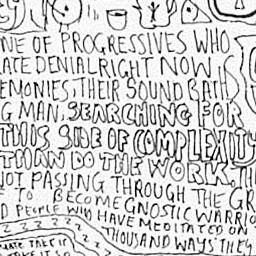 NE OF PROGRESSIVES WHO
ATE DENIAL RIGHT NOW IS
EMONIES, THEIR SOUND BATH
G MAN, SEARCHING FOR
THIS SIDE OF COMPLEXITY
THAN DO THE WORK. TH
NOT PASSING THROUGH THE GR
TO BECOME GNOSTIC WARRIO
D PEOPLE WHO HAVE MEDITATED ON
Z Z Z Z Z Z Z THOUSAND WAYS THEY
TAKE IT
TAKE IT SO